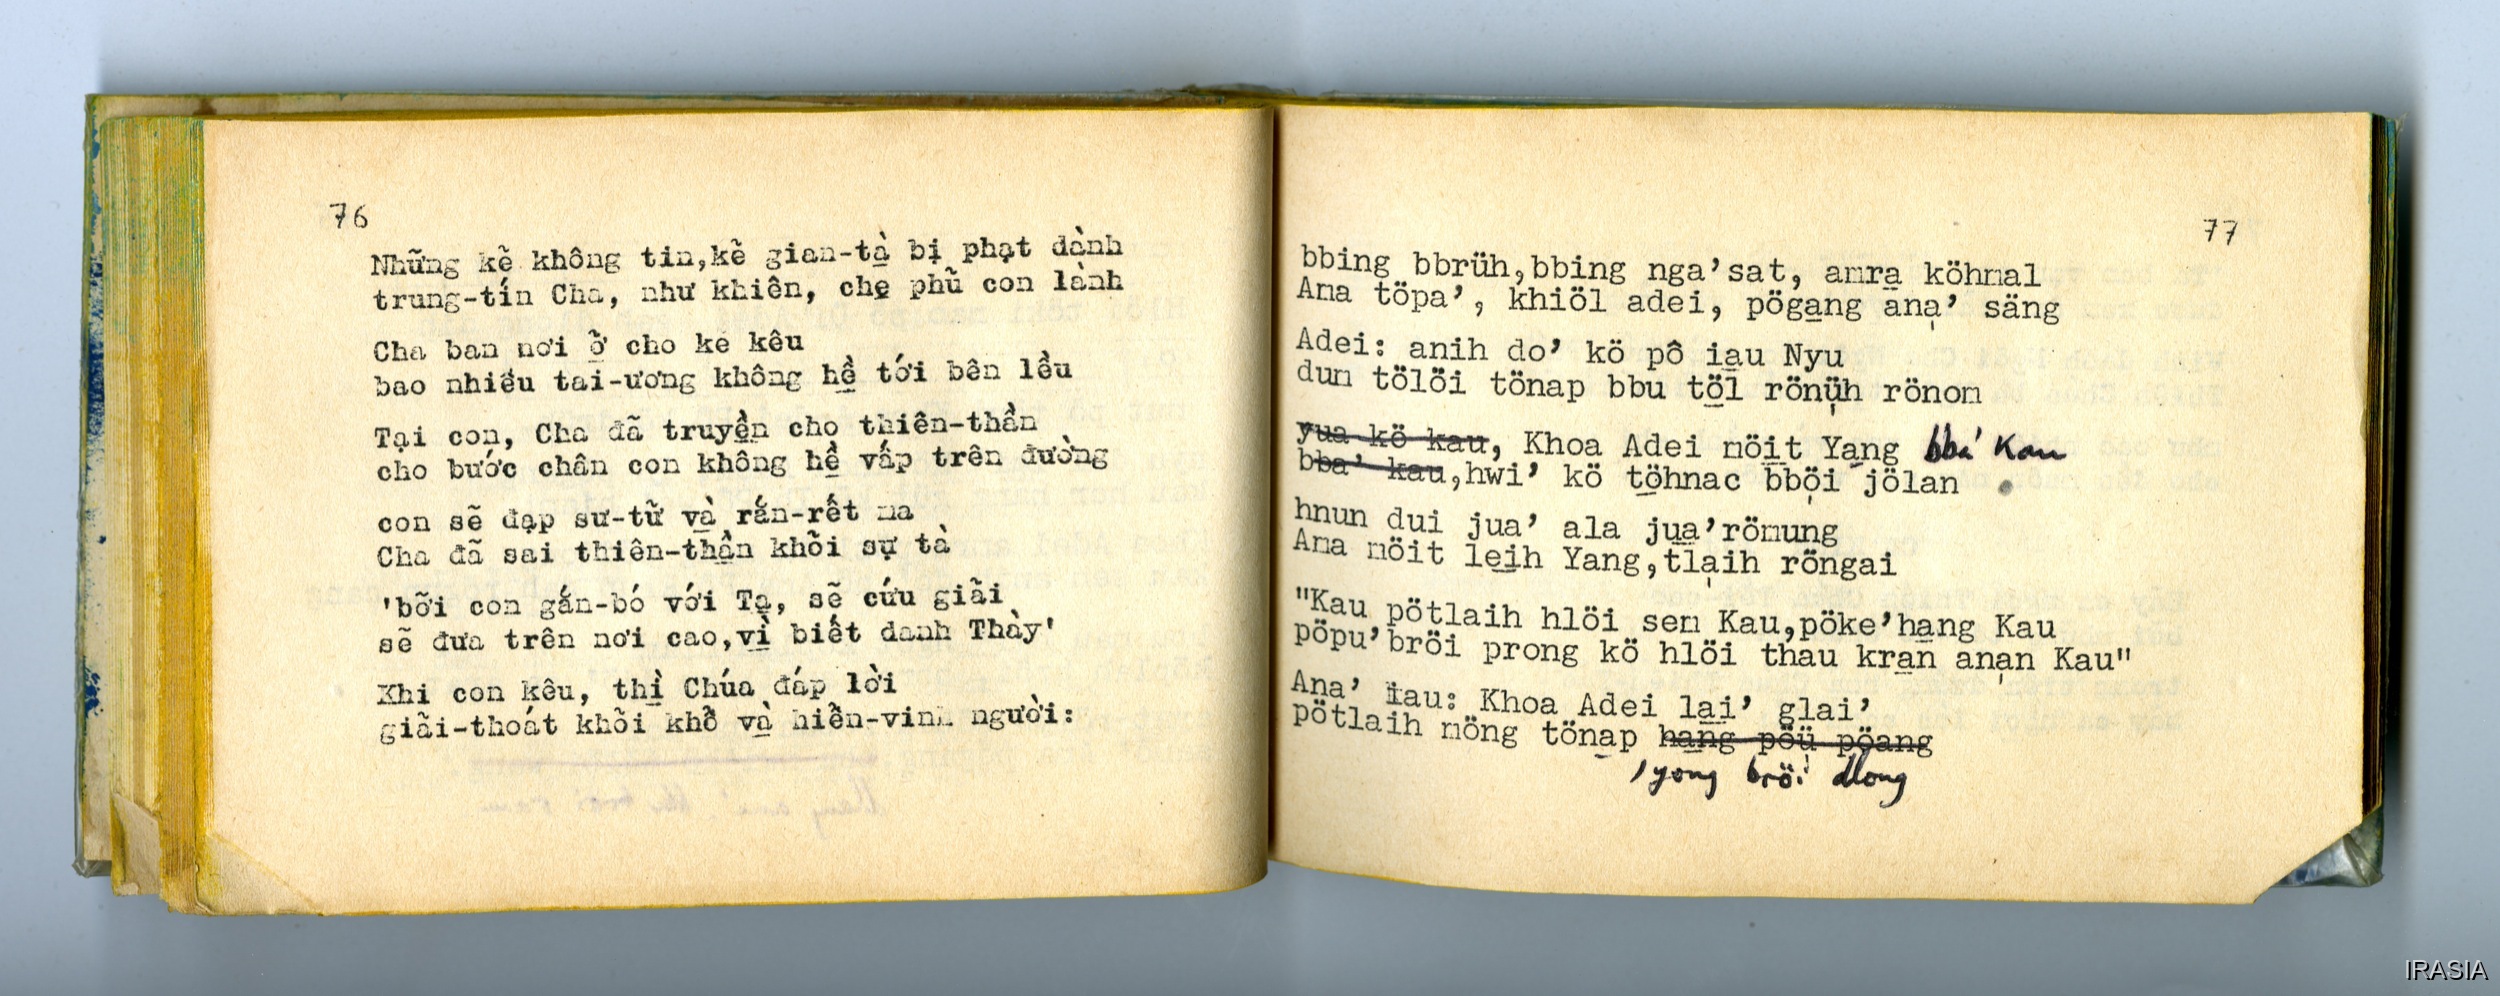 76
Những kẽ không tin,kẽ gian-tà bị phạt dành
trung-tín Cha, như khiên, che phũ con lành
Cha ban nơi ở cho kẻ kêu
bao nhiều tai-ương không hề tới bên lều
Tại con, Cha đã truyền cho thiên-thần
cho bước chân con không hề vấp trên đường
con sẽ đạp sư-tữ và rắn-rết ma
Cha đã sai thiên-thần khõi sự tà
'bỡi con gắn-bó với Ta, sẽ cứu giãi
sẽ đưa trên nơi cao,vì biết danh Thày'
Khi con kêu, thì Chúa đáp lời
giãi-thoát khõi khỗ và hiễn-vinh người:
77
bbing bbrüh,bbing nga’sat, amra köhmal
Ama töpa’, khiöl adei, pögang ana’ säng
Adei: anih do’ kö pô iau Nyu
dum tölöi tönap bbu töl rönüh rönom
yua kö kau, Khoa Adei nöit Yang bba' Kau
bba’ kau,hwi’ kö töhnac bböi jölan
hnun dui jua’ ala jua’römung
Ama nöit leih Yang,tlaih röngai
"Kau pötlaih hlöi sem Kau,pöke’hang Kau
pöpu’bröi prong kö hlöi thau kran anan Kau"
Ana’ iau: Khoa Adei lai’ glai’
pötlaih nöng tönap hang pöü pöang
, yong bröi dlong
IRASIA